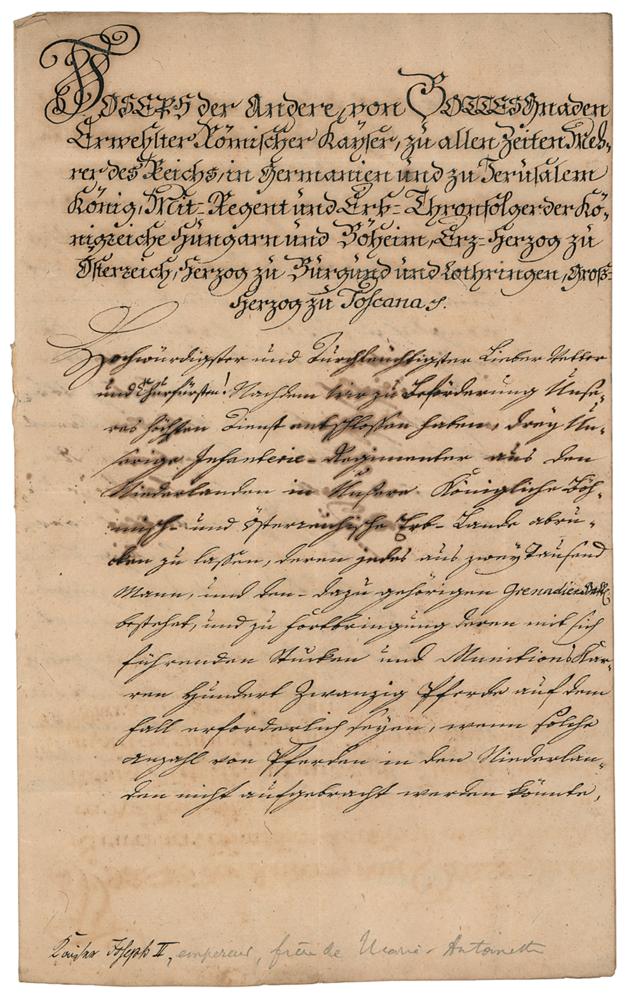 JOSEPH der Andere von GOTTES Gnaden
Erwehlter Römischer Kayser, zu allen Zeiten Meh-
rer des Reichs, in Germanien und zu Jerusalem
König, Mit-Regent und Erb-Thronfolger der Kö-
nigreiche Hungarn und Böheim, Erz-Herzog zu
Österreich, Herzog zu Burgund und Lothringen, Groß-
Herzog zu Toscana
Hochwürdigster und Durchleuchtigster Lieber Vetter
und Churfürst! Nachdem wir zu Beförderung Unse-
res höchsten Dienst entschlossen haben, drey Un-
serige Infanterie-Regimenter aus den
Niederlanden in Unsere Königliche Böh-
misch- und Österreichische Erb-Lande abru-
cken zu lassen, deren jedes aus zwey Tausend
Mann, und den- dazu gehörigen Grenadiers
bestehet, und zu fortbringung deren mit sich
führenden Stucken und Munitions Kar-
ren Hundert Zwanzig Pferde auf dem
fall erforderlich seyen, wenn solche
Anzahl von Pferden in den Niederlan-
den nicht aufgebracht werden könnte,
Kaiser Joseph II, empereur, frère de Marie-Antoinette